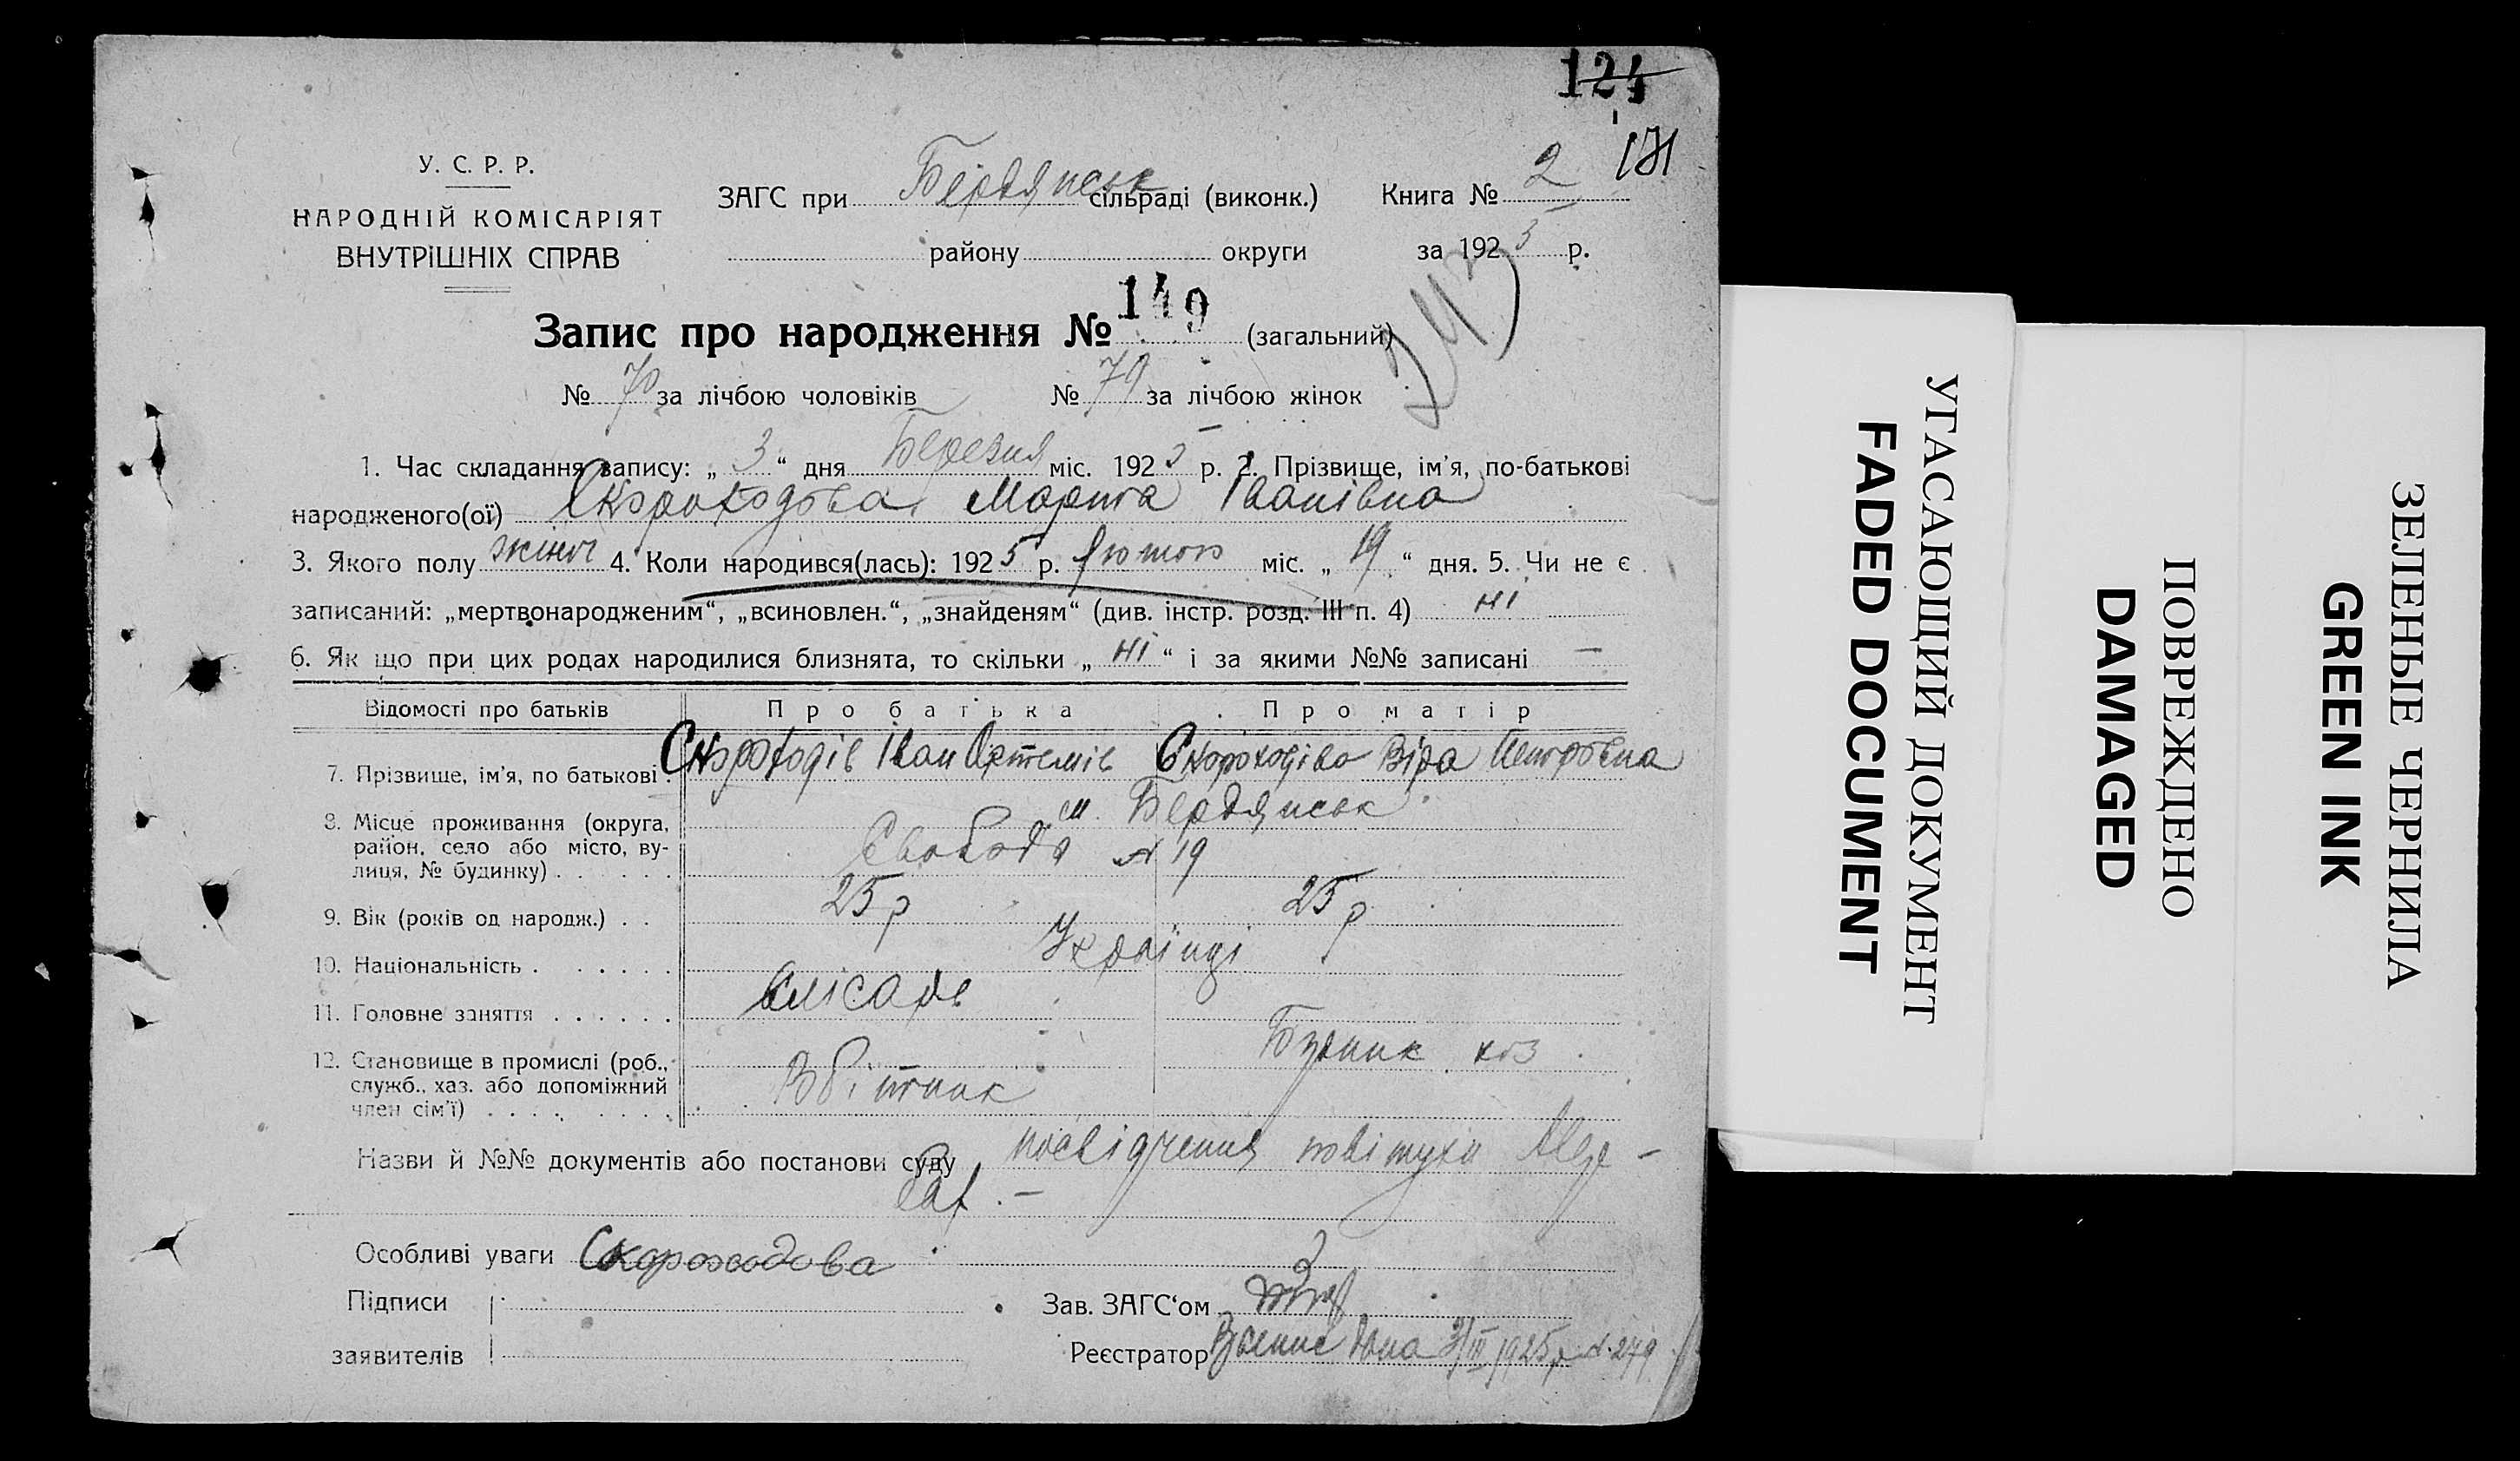 124
171
У. С. Р. Р.
НАРОДНІЙ КОМІСАРІЯТ
ВНУТРІШНІХ СПРАВ
ЗАГС при Бердянськ сільраді (виконк.) Книга № 2
району округи за 1925 р.
243
Запис про народження № 149 (загальний)
№ 70 за лічбою чоловіків № 79 за лічбою жінок
1. Час складання запису: „ 3 “ дня Березня міс. 1925 р. 2. Прізвище, ім’я, по-батькові
народженого(ої) Скороходова Марта Іванівна
3. Якого полу жіноч 4. Коли народився(лась): 1925 р. Лютого міс. „ 19 “ дня. 5. Чи не є
записаний: „мертвонародженим“, „всиновлен.“, „знайденям“ (див. інстр. розд. III п. 4) ні
6. Як що при цих родах народилися близнята, то скільки „ ні “ і за якими №№ записані —
Відомості про батьків Про батька Про матір
7. Прізвище, ім’я, по батькові Скороходів Іван Артемів Скороходіва Віра Петровна
8. Місце проживання (округа, район, село або місто, вулиця, № будинку) м. Бердянськ
Свобода № 19
9. Вік (років од народж.) 25 р 25 р
10. Національність Українці
11. Головне заняття Слісарь
12. Становище в промислі (роб., служб., хаз. або допоміжний член сім’ї)
Назви й №№ документів або постанови суду посвідчення повітухи
Особливі уваги Скороходова
Підписи Зав. ЗАГС‘ом
заявителів Реєстратор дана 3/III 1925 р № 279
УГАСАЮЩИЙ ДОКУМЕНТ
FADED DOCUMENT
ПОВРЕЖДЕНО
DAMAGED
ЗЕЛЕНЫЕ ЧЕРНИЛА
GREEN INK